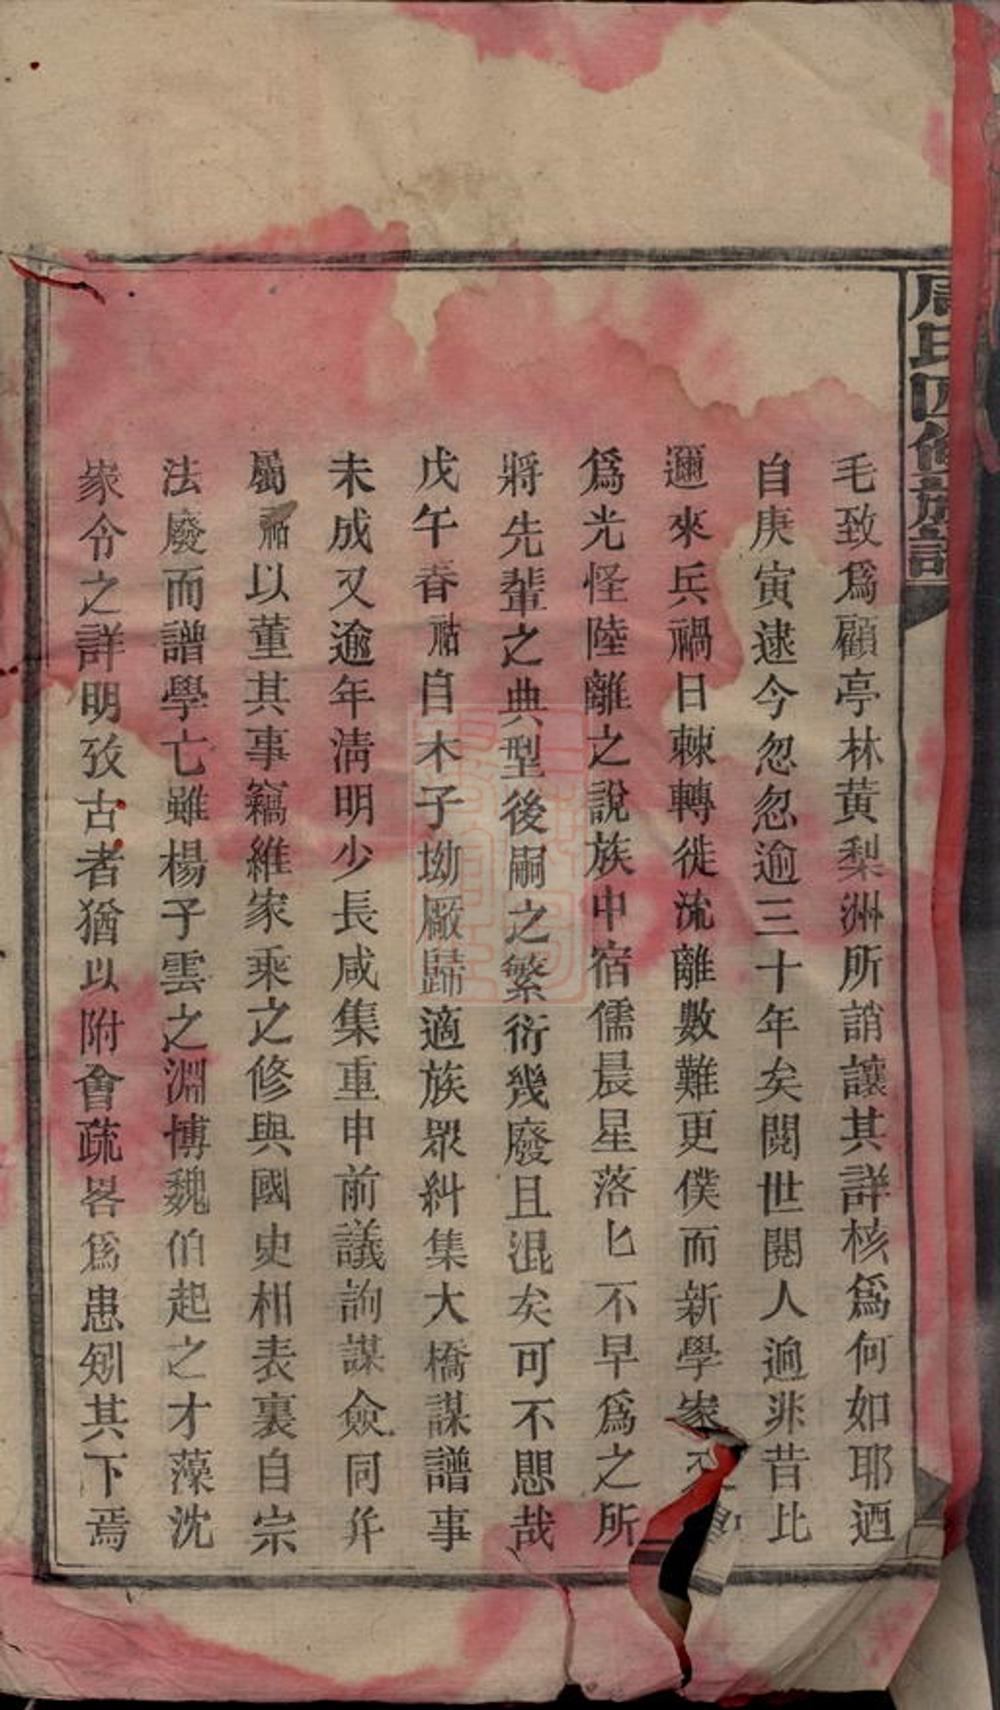 周氏四修族譜
毛致爲顧亭林黃梨洲所誚讓其詳核爲何如耶迺
自庚寅逮今忽忽逾三十年矣閱世閱人逈非昔比
邇來兵禍日棘轉徙流離數難更僕而新學家又
爲光怪陸離之說族中宿儒晨星落匕不早爲之所
將先輩之典型後嗣之繁衍幾廢且混矣可不愳哉
戊午春祜自木子坳厰歸適族眾糾集大橋謀譜事
未成又逾年清明少長咸集重申前議詢謀僉同幷
屬祜以董其事竊維家乘之修與國史相表裏自宗
法廢而譜學亡雖楊子雲之淵博魏伯起之才藻沈
家令之詳明攷古者猶以附會疏畧爲患矧其下焉